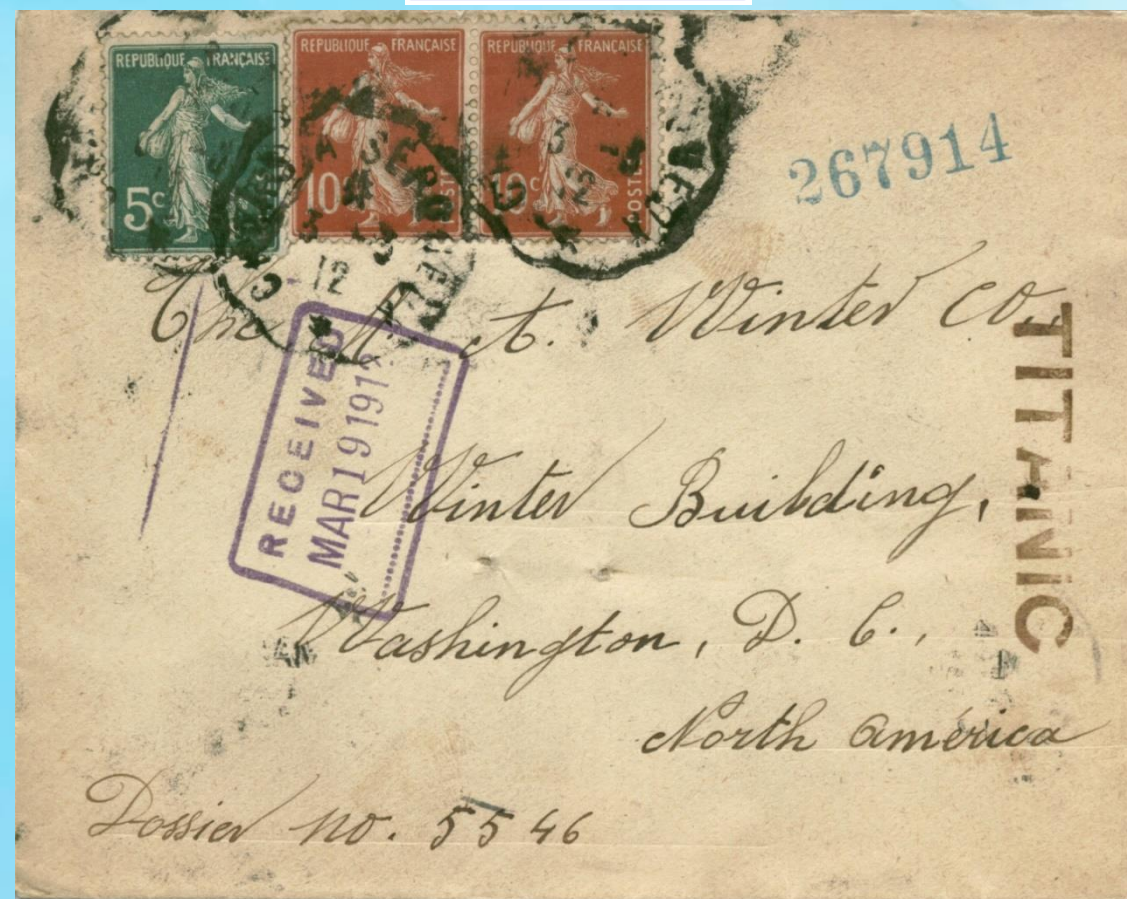 REPUBLIQUE FRANÇAISE
5c
REPUBLIQUE FRANÇAISE
10c
POSTES
REPUBLIQUE FRANÇAISE
10c
POSTES
3
12
12
267914
The A. Winter Co.,
RECEIVED
MAR 19 191
Winter Building,
Washington, D. C.,
North América
Dossier no. 5546
TITANIC